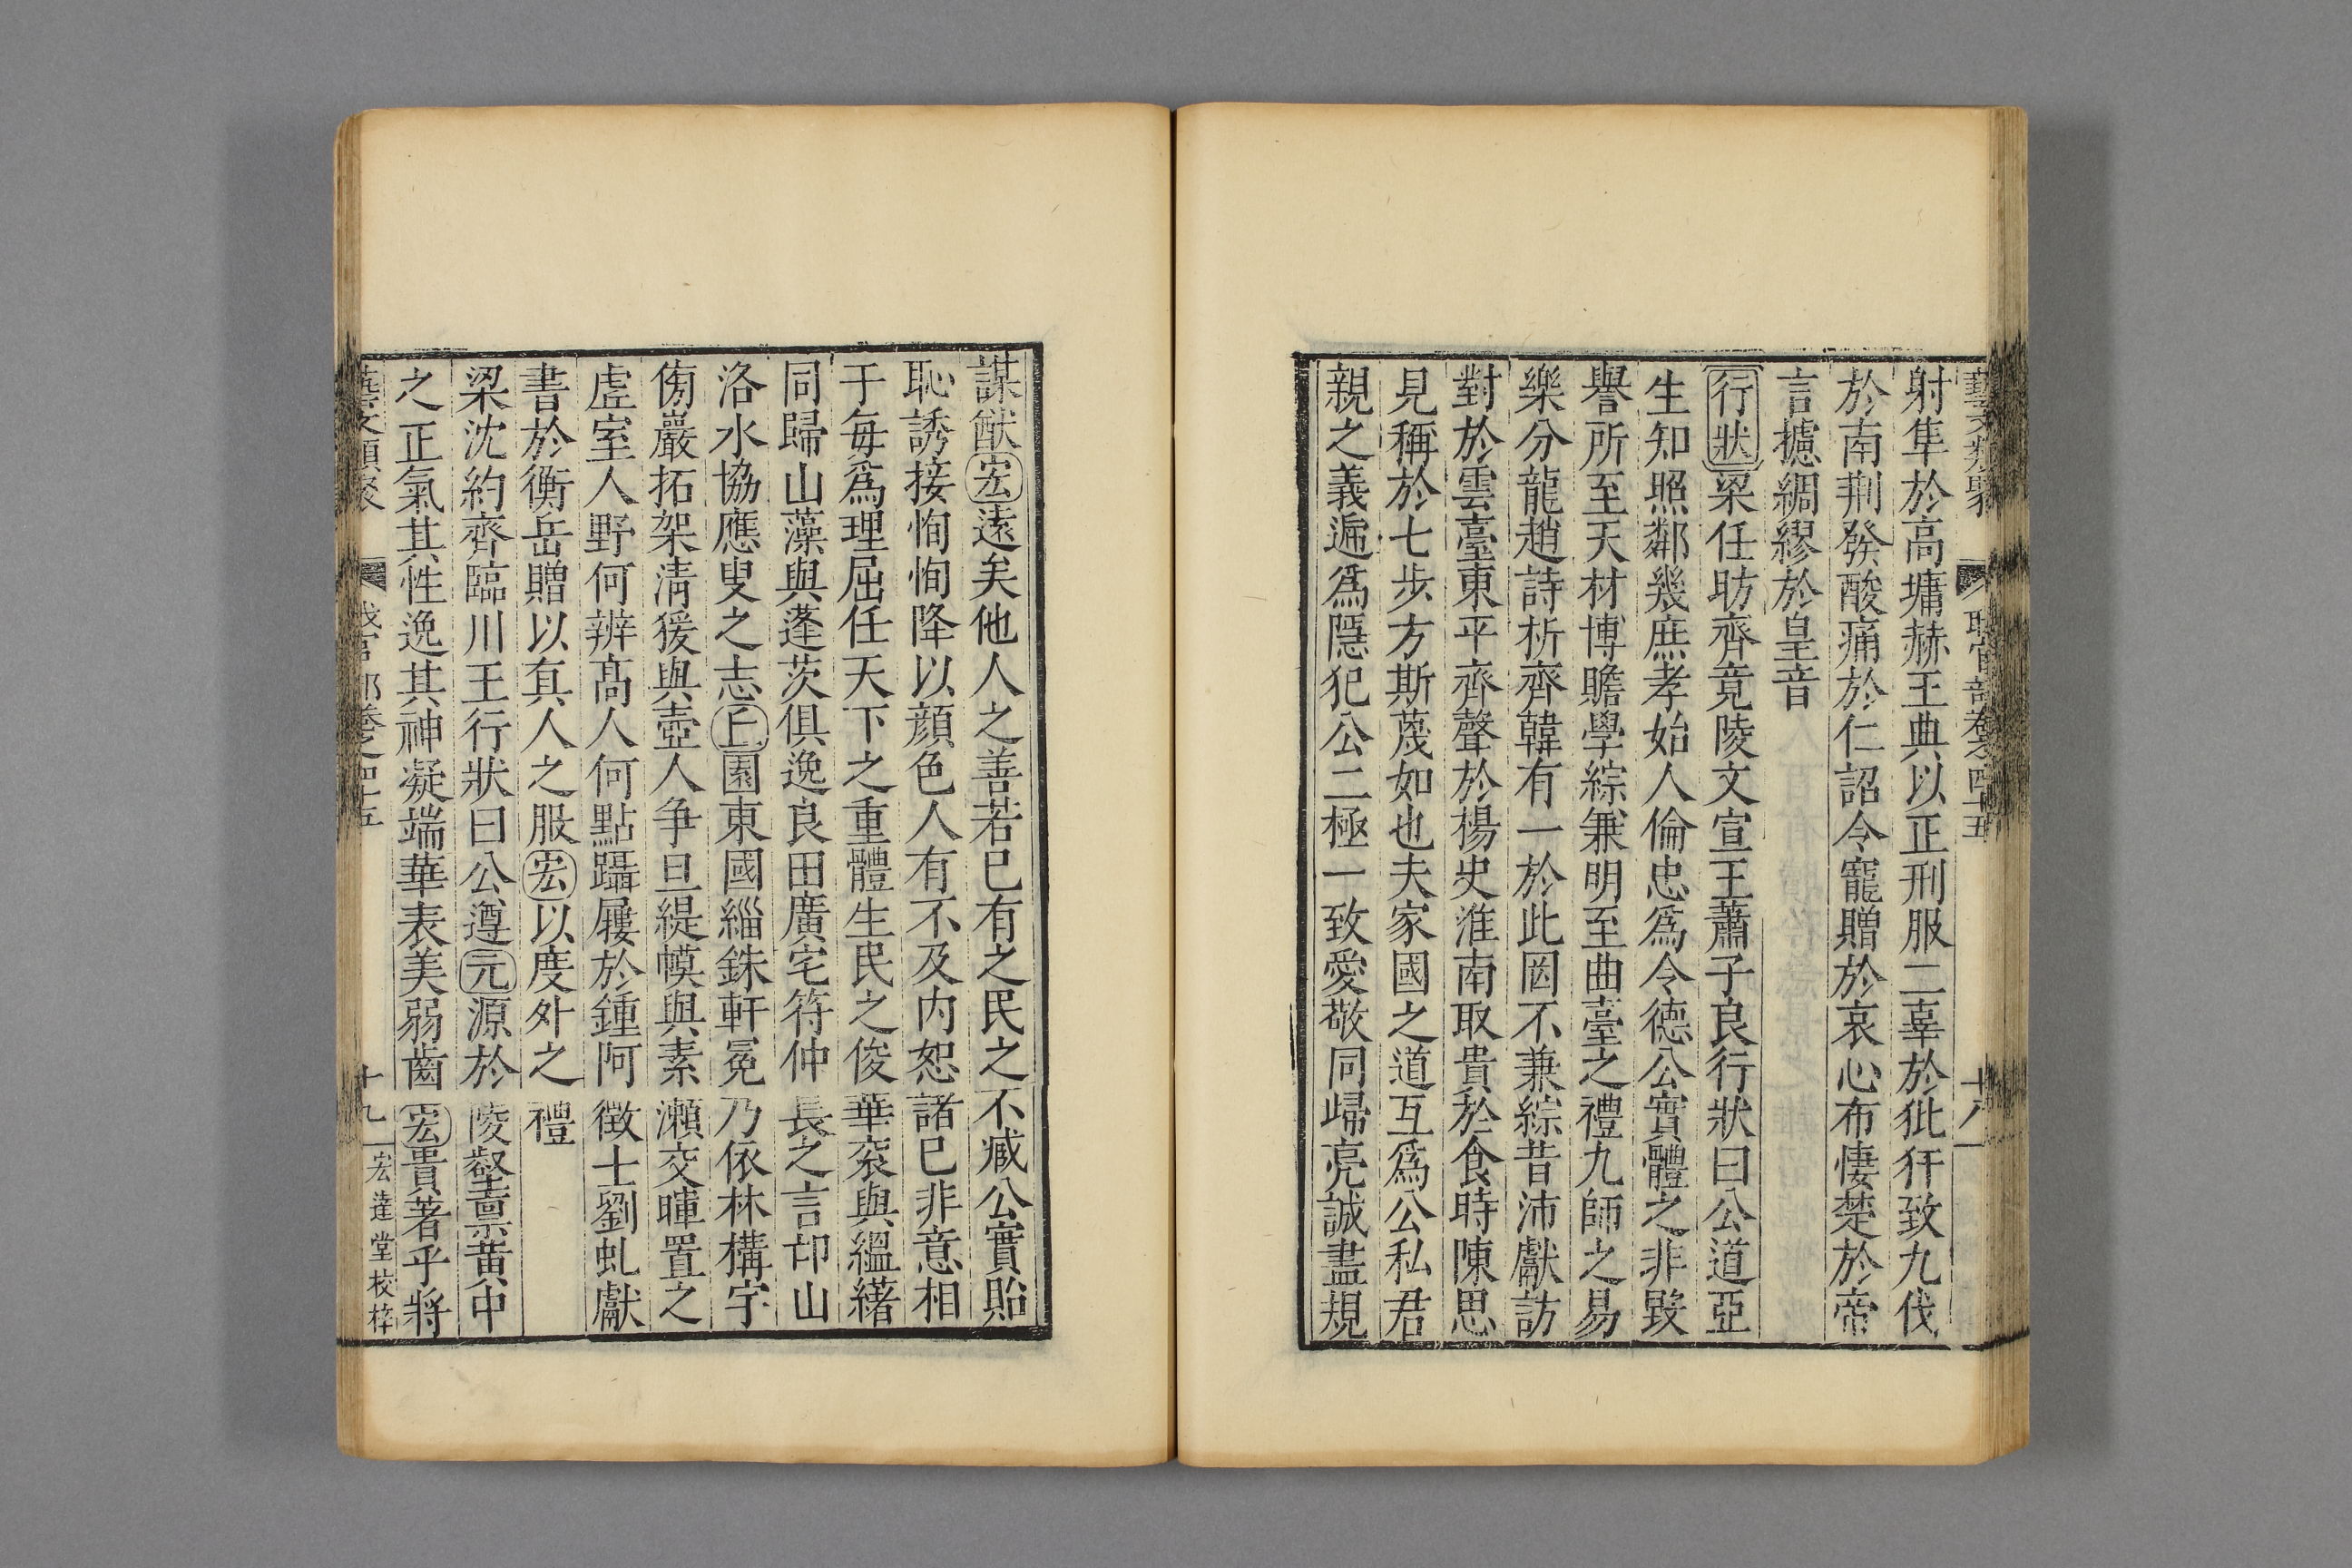 藝文類聚　職官部卷之四十五　十八
射隼於高墉赫王典以正刑服二辜於紕犴致九伐
於南荆發酸痛於仁詔令寵贈於哀心布悽楚於帝
言攄綢繆於皇音
行狀梁任昉齊竟陵文宣王蕭子良行狀曰公道亞
生知照鄰幾庶孝始人倫忠爲令德公實體之非毀
譽所至天材博贍學綜兼明至曲臺之禮九師之易
樂分龍趙詩析齊韓有一於此罔不兼綜昔沛獻訪
對於雲臺東平齊聲於楊史淮南取貴於食時陳思
見稱於七步方斯蔑如也夫家國之道互爲公私君
親之義遍爲隱犯公二極一致愛敬同歸亮誠盡規
謀猷宏遠矣他人之善若已有之民之不臧公實貽
恥誘接恂恂降以顔色人有不及内恕諸已非意相
于每爲理屈任天下之重體生民之俊華衮與縕䋰
同歸山藻與蓬茨俱逸良田廣宅符仲長之言邙山
洛水協應叟之志丘園東國緇銖軒冕乃依林構宇
傍巖拓架清猨與壺人争旦緹幙與素瀨交暉置之
虛室人野何辨髙人何點躡屨於鍾阿徵士劉虬獻
書於衡岳贈以真人之服宏以度外之禮
梁沈約齊臨川王行狀曰公遵元源於陵壑禀黄中
之正氣其性逸其神凝端華表美弱齒宏貴著乎將
藝文類聚　職官部卷之四十五　十九　宏達堂校梓